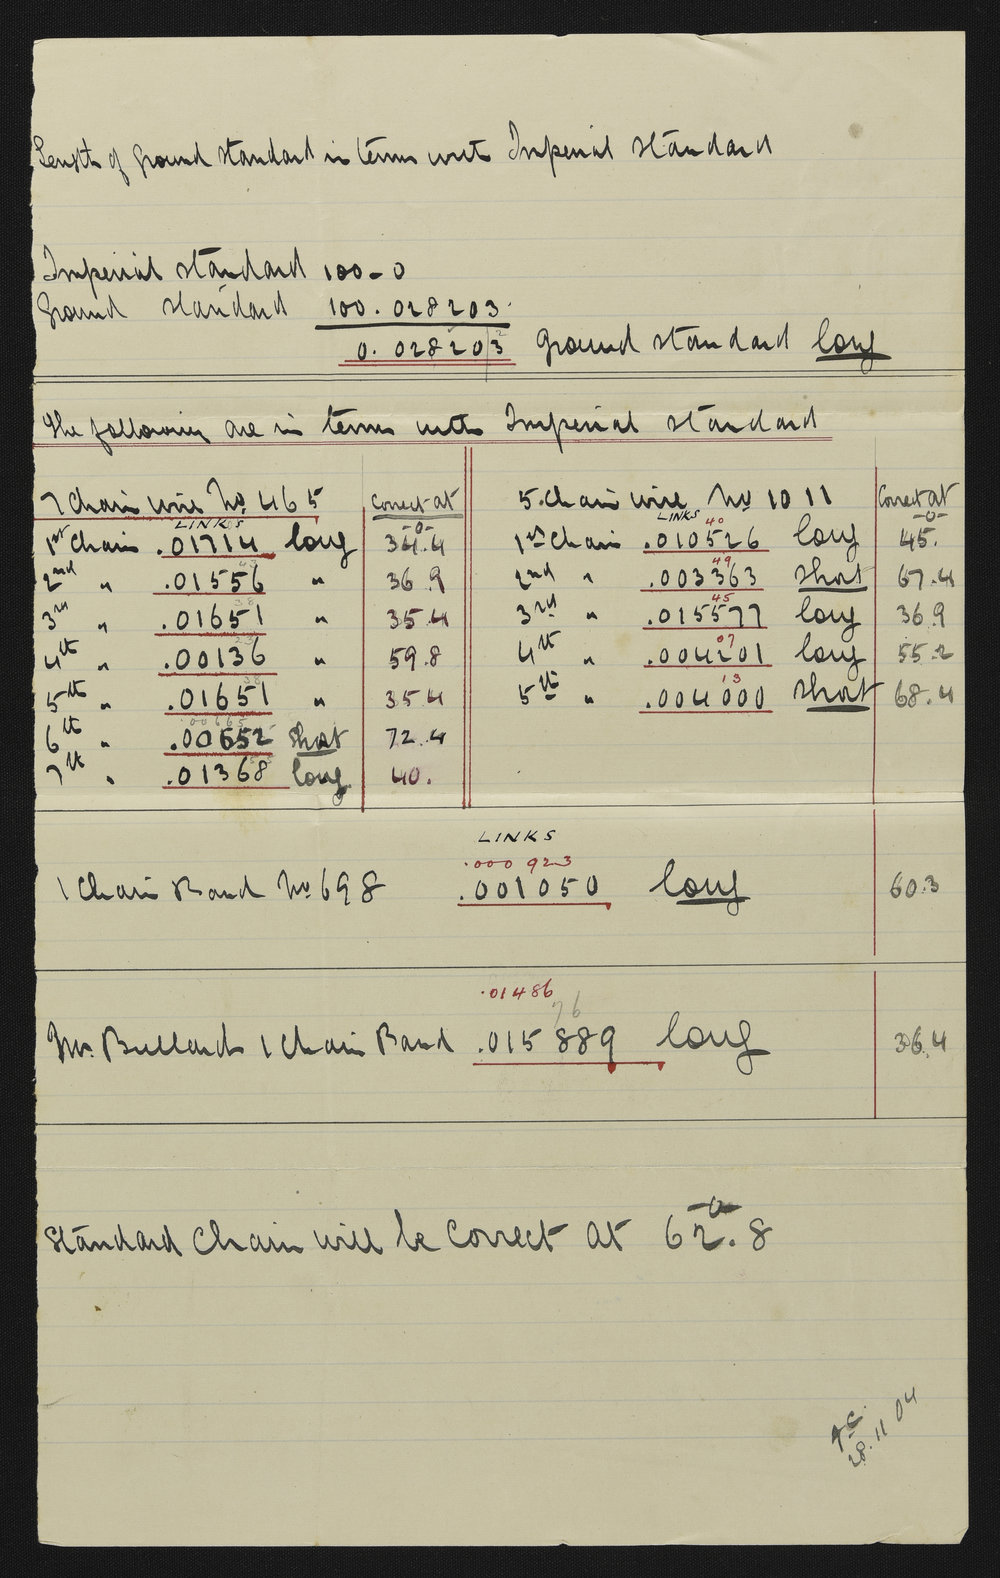 Length of Ground Standard in terms with Imperial Standard
Imperial Standard 100 - 0
Ground Standard 100.028203
0.028203 Ground Standard long
The following are in terms with Imperial Standard
7 Chain wire No 465 Correct at
LINKS -0-
1st Chain .01714 long 34.4
2nd " .01556 " 36.9
3rd " .01651 " 35.4
4th " .00136 " 59.8
5th " .01651 " 35.4
6th " .00652 Short 72.4
7th " .01368 long 40.
5.Chain wire No 1011 Correct at
LINKS -0-
40
1st Chain .010526 long 45.
49
2nd " .003363 Short 67.4
45
3rd " .015577 long 36.9
07
4th " .004201 long 55.2
13
5th " .004000 Short 68.4
LINKS
.000923
1 Chain Band No 698 .001050 long 60.3
.01486
76
Mr. Bullards 1 Chain Band .015889 long 36.4
Standard Chain will be Correct at 62.8
28.11.04